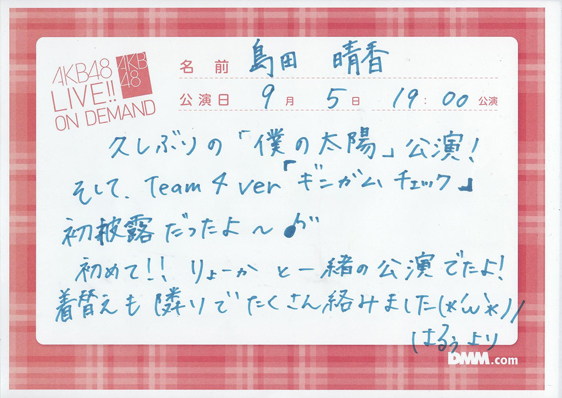 AKB48
LIVE!!
ON DEMAND
AKB
48
名前 島田 晴香
公演日 9月 5日 19:00 公演
久しぶりの「僕の太陽」公演!
そして、Team 4 ver「ギンガムチェック」
初披露だったよ~♪
初めて!!りょーかと一緒の公演でたよ!
着替えも隣りでたくさん絡みました(*'ω`*)/
はるぅより
DMM.com